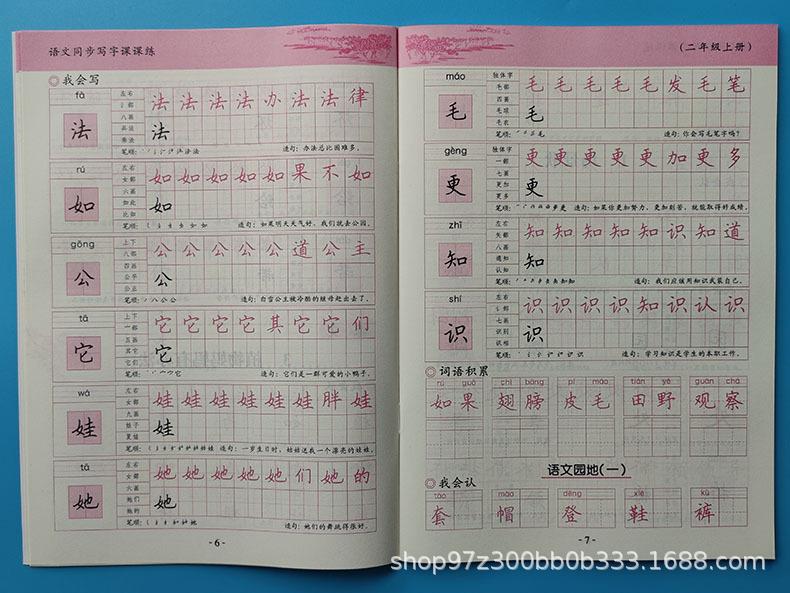 语文同步写字课课练
我会写
fǎ
法
左右
氵部
八画
法 法 法 法 办 法 法 律
法
笔顺:
造句:办法总比困难多。
rú
如
左右
女部
六画
如此
比如
如 如 如 如 如 果 不 如
如
笔顺:
造句:如果明天天气好,我们就去公园。
gōng
公
上下
八部
四画
公平
公正
公 公 公 公 公 道 公 主
公
笔顺:
造句:白雪公主被冷酷的继母赶出去了。
tā
它
上下
宀部
五画
其它
它们
它 它 它 它 其 它 它 们
它
笔顺:
造句:它们是一群可爱的小鸭子。
wá
娃
左右
女部
九画
娃子
娃 娃 娃 娃 娃 娃 胖 娃
娃
笔顺:
造句:一岁生日时,姑姑送我一个漂亮的娃娃。
tā
她
左右
女部
六画
她们
她的
她 她 她 她 她 们 她 的
她
笔顺:
造句:她们的舞跳得很好。
- 6 -
(二年级上册)
máo
毛
独体字
毛部
四画
毛球
毛衣
毛 毛 毛 毛 毛 发 毛 笔
毛
笔顺:
造句:你会写毛笔字吗?
gèng
更
独体字
一部
七画
更加
更多
更 更 更 更 更 加 更 多
更
笔顺:
造句:如果你更加努力,更加刻苦,就能取得好成绩。
zhī
知
左右
矢部
八画
通知
认知
知 知 知 知 知 识 知 道
知
笔顺:
造句:我们应该用知识武装自己。
shí
识
左右
讠部
七画
识别
识相
识 识 识 识 知 识 认 识
识
笔顺:
造句:学习知识是学生的本职工作。
词语积累
rú guǒ chì bǎng pí máo tián yě guān chá
如果 翅膀 皮毛 田野 观察
语文园地(一)
我会认
tào mào dēng xié kù
套 帽 登 鞋 裤
- 7 -
shop97z300bb0b333.1688.com